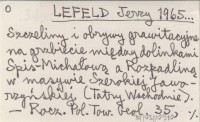 O LEFELD Jerzy 1965...
Szczeliny i obrywy grawitacyjne
na grzbiecie między dolinkami
Spis-Michałową a Rozpadliną
w masywie Szerokiej Jawo-
rzyńskiej (Tatry Wschodnie).
— Rocz. Pol. Tow. Geol. 35